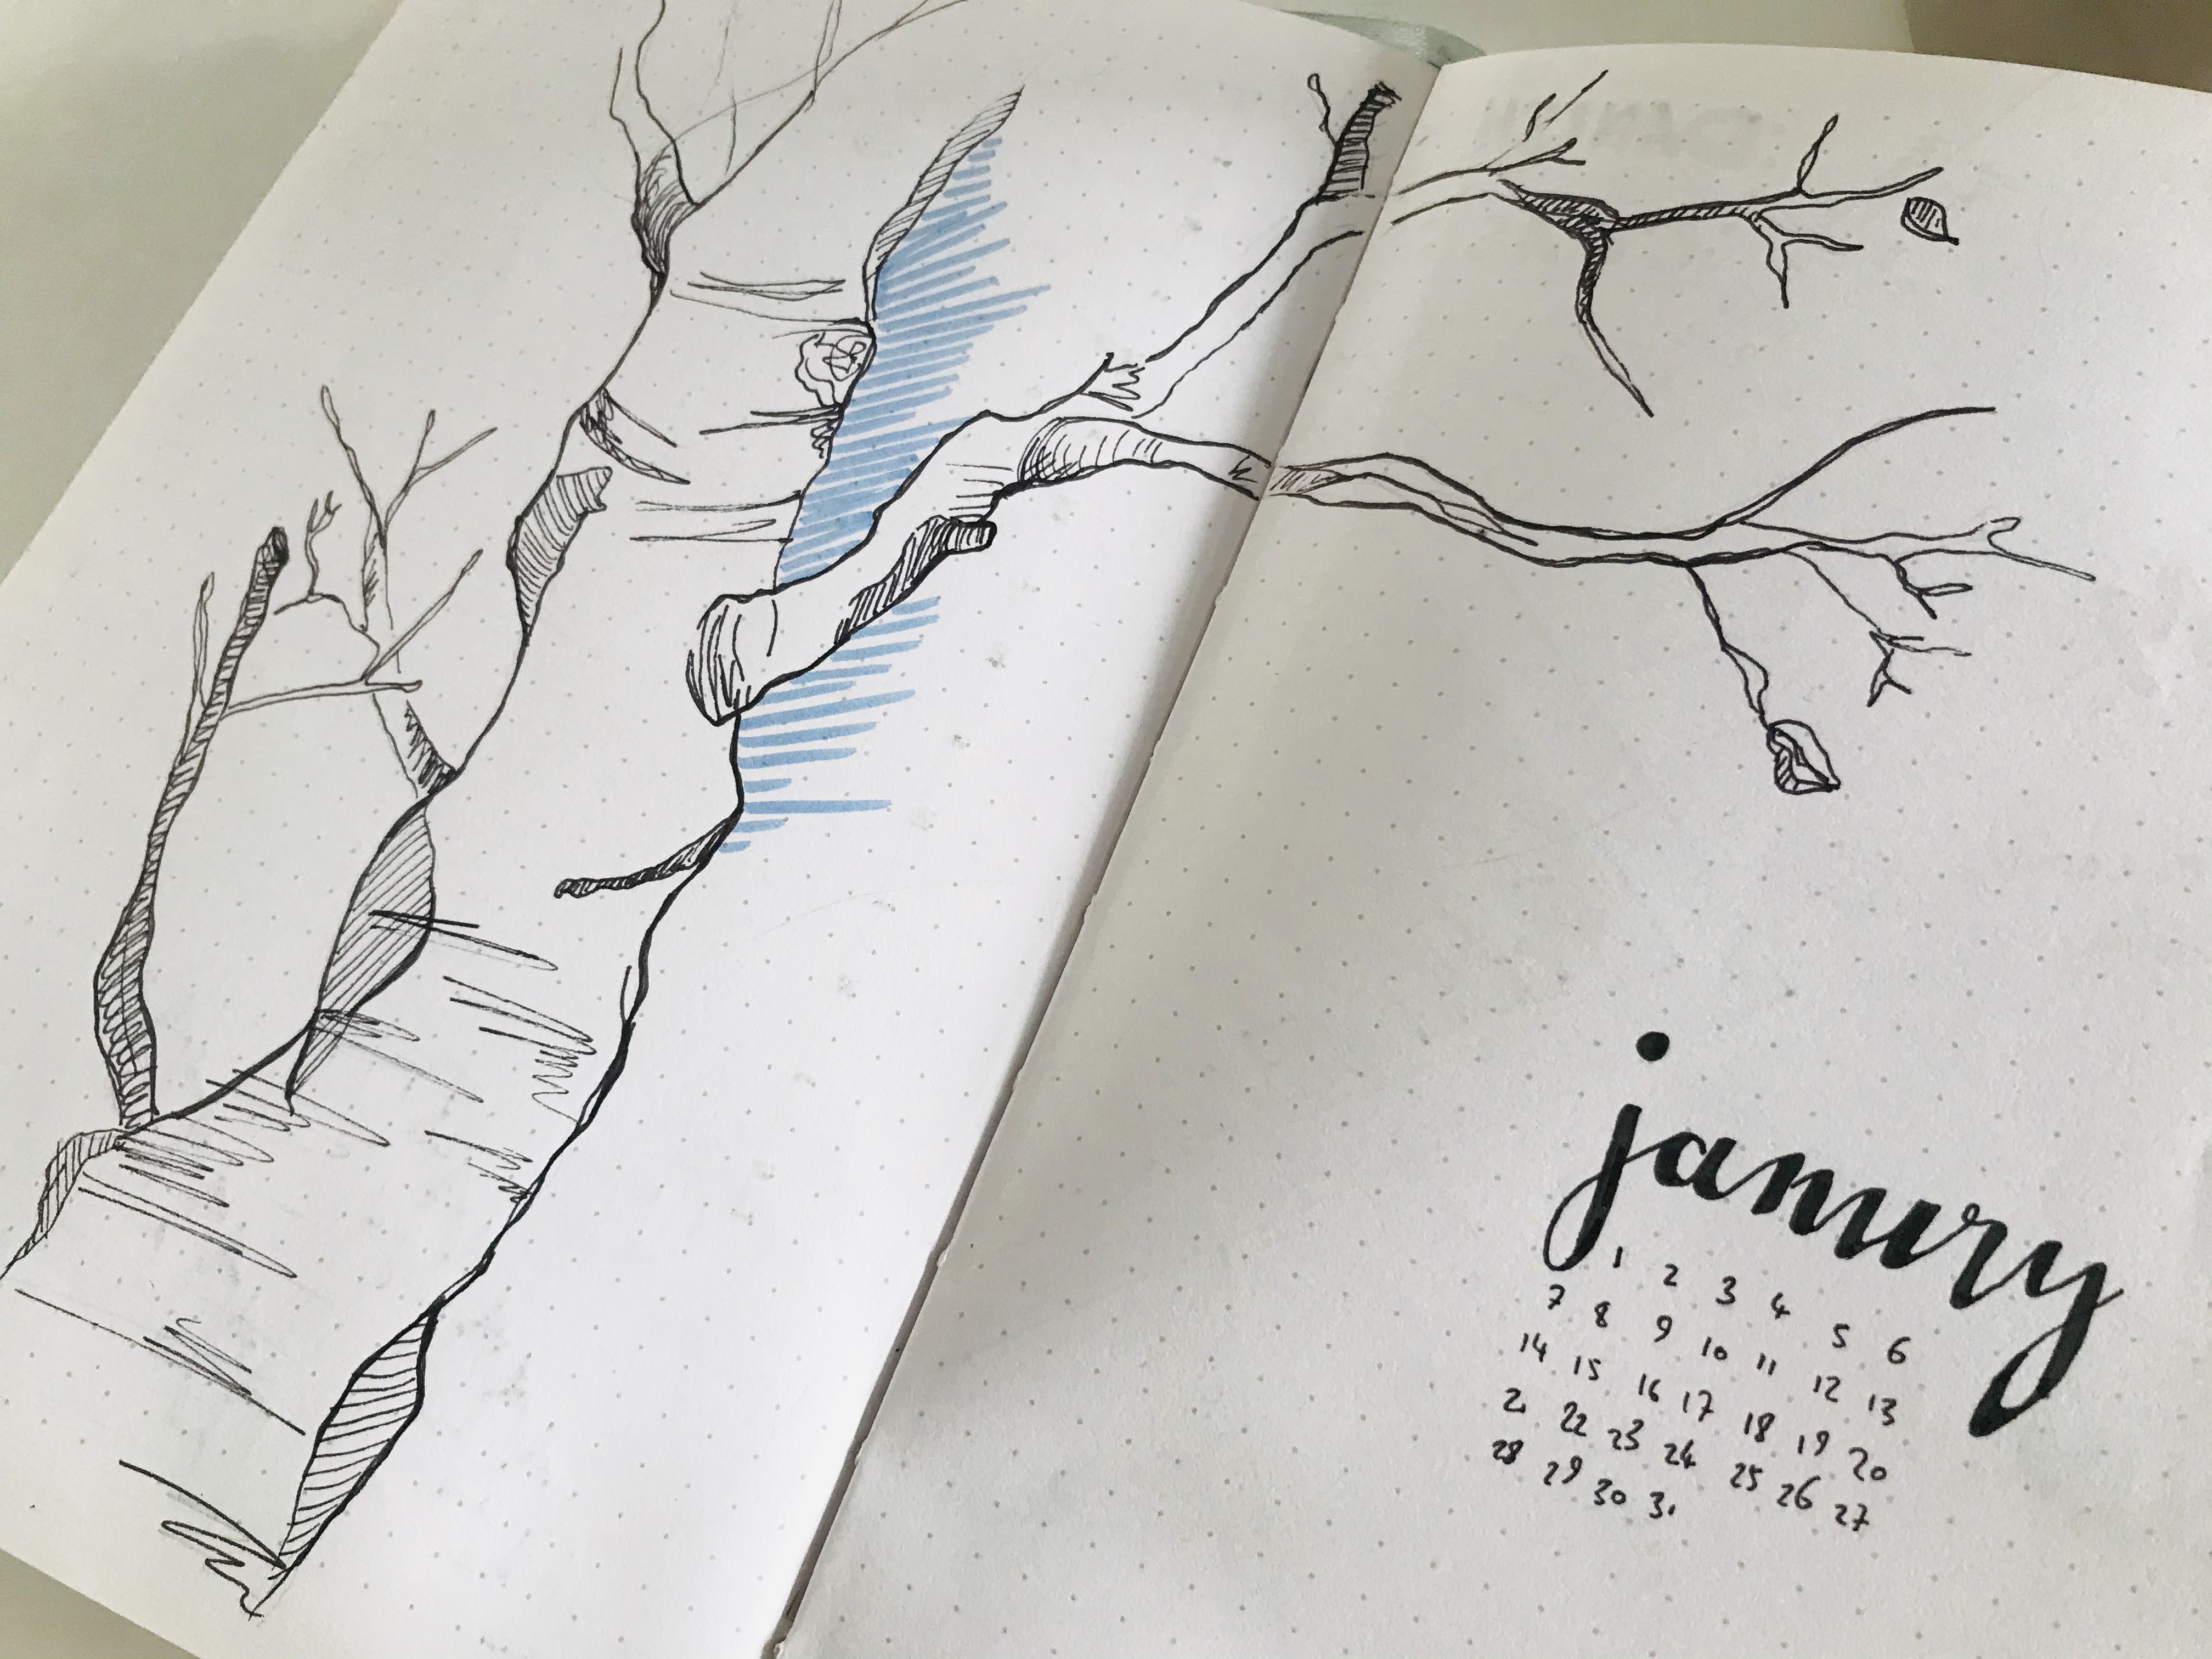 janury
1 2 3 4 5 6
7 8 9 10 11 12 13
14 15 16 17 18 19 20
21 22 23 24 25 26 27
28 29 30 31